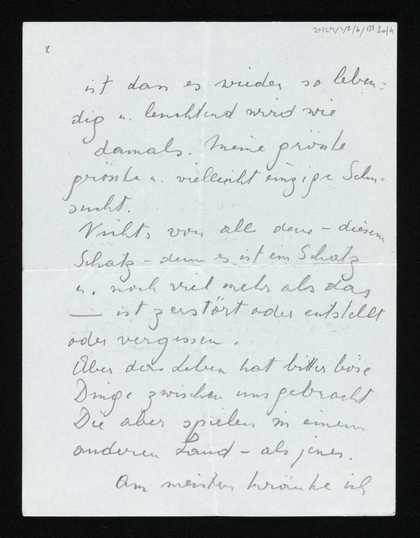 2
ist dass es wieder so leben=
dig u. leuchtend wird wie
damals. Meine grösste
grösste u. vielleicht einzige Sehn-
sucht.
Nichts von all dem – diesem
Schatz – denn es ist ein Schatz
u. noch viel mehr als das
— ist zerstört oder entstellt
oder vergessen.
Aber das Leben hat bitter böse
Dinge zwischen uns gebracht
Die aber spielen in einem
anderen Land – als jenes.
Am meisten kränke ich